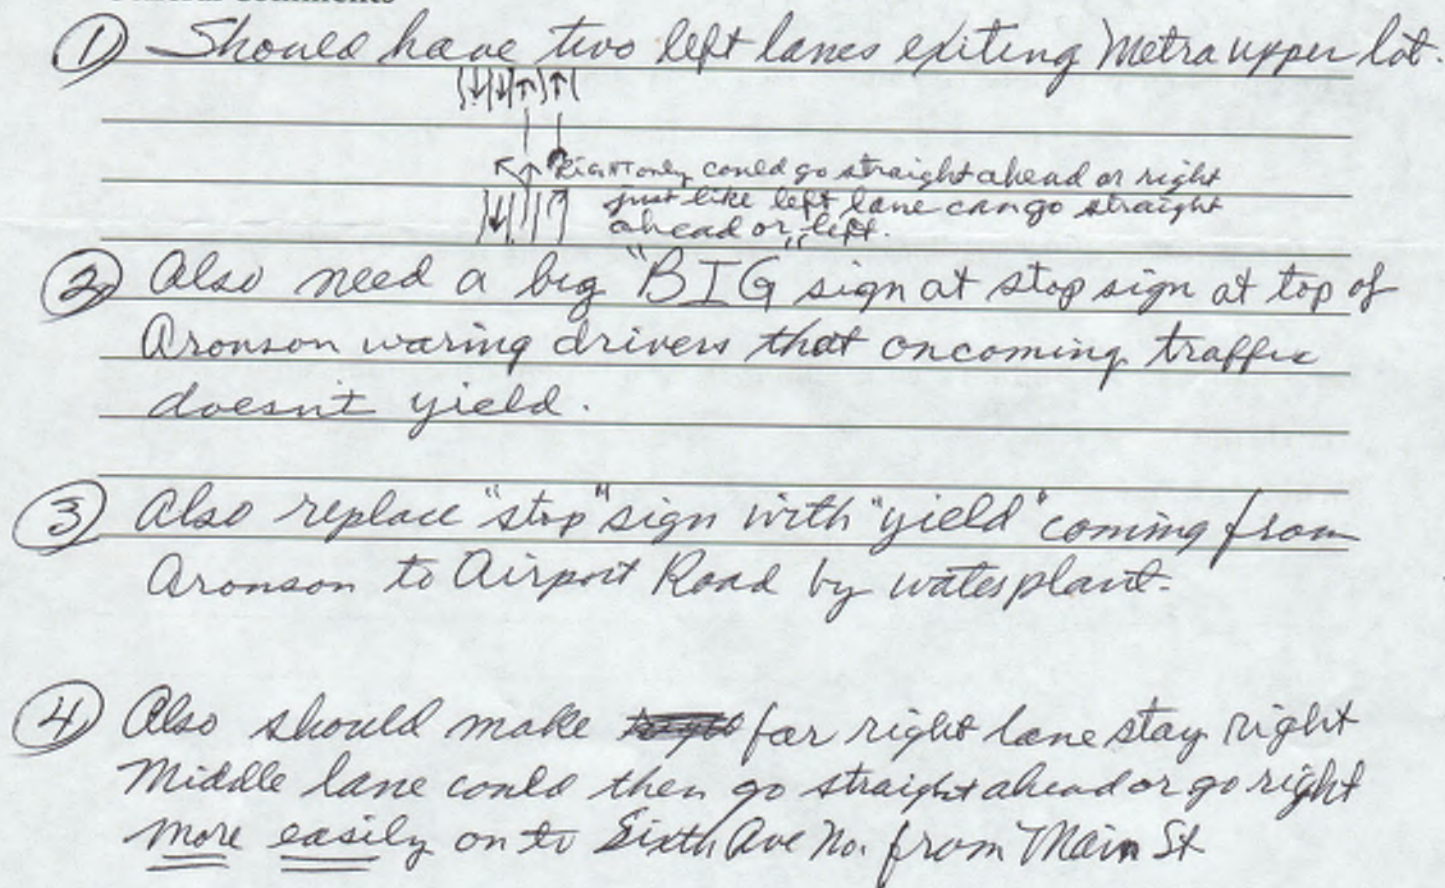 ① Should have two left lanes exiting Metra upper lot.
Right only could go straight ahead or right
just like left lane can go straight
ahead or left.
② Also need a big "BIG" sign at stop sign at top of
Aronson waring drivers that oncoming traffic
doesn't yield.
③ Also replace "stop" sign with "yield" coming from
Aronson to Airport Road by waterplant.
④ Also should make far right lane stay right
Middle lane could then go straight ahead or go right
more easily on to Sixth Ave No. from Main St